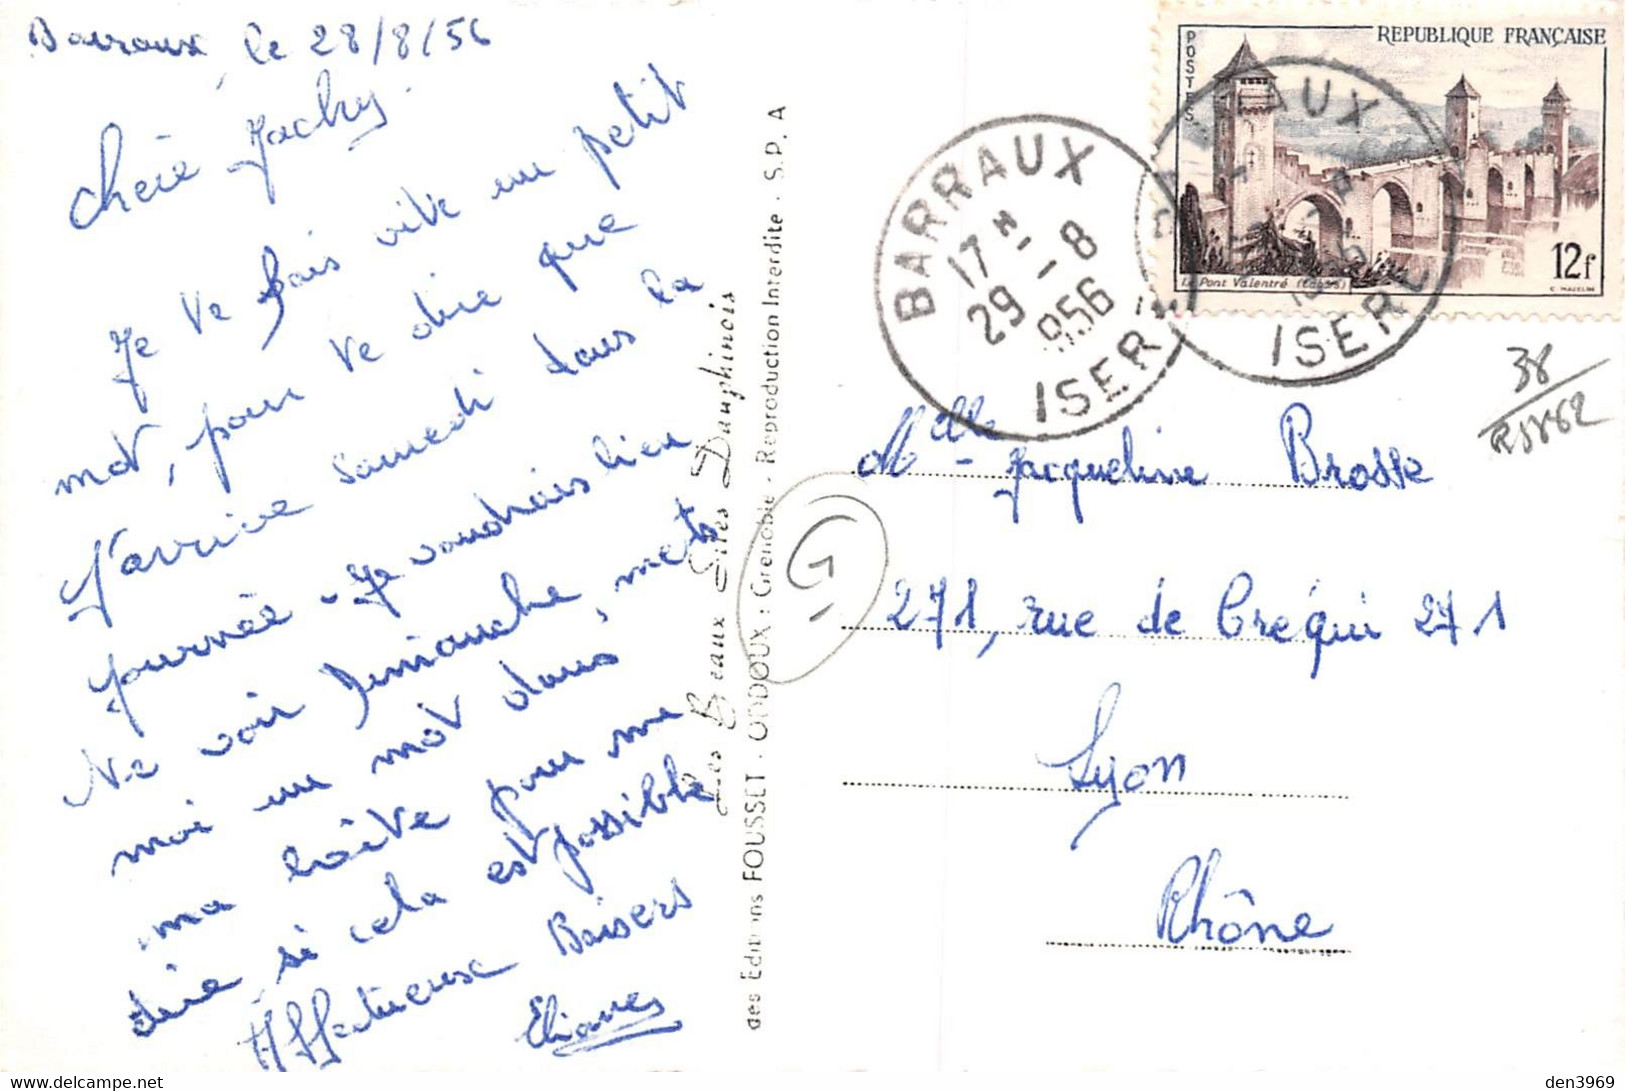 Barraux, le 28/8/56
Chère Jacky.
Je te fais vite un petit
mot, pour te dire que
j'arrive samedi dans la
journée - Je voudrais bien
te voir Dimanche, mets
moi un mot dans
ma boîte pour me
dire si cela est possible
Affectueuse Baisers
Eliane
Les Beaux Sites Dauphinois
des Editions FOUSSET - ODDOUX : Grenoble - Reproduction Interdite - S.P.A
REPUBLIQUE FRANÇAISE
POSTES
Le Pont Valentré (Cahors)
12f
C. MAZELIN
BARRAUX
17H
29-8
1956
ISERE
ISERE
38
G-
Mdlle Jacqueline Brosse
271, rue de Créqui 271
Lyon
Rhône
den3969